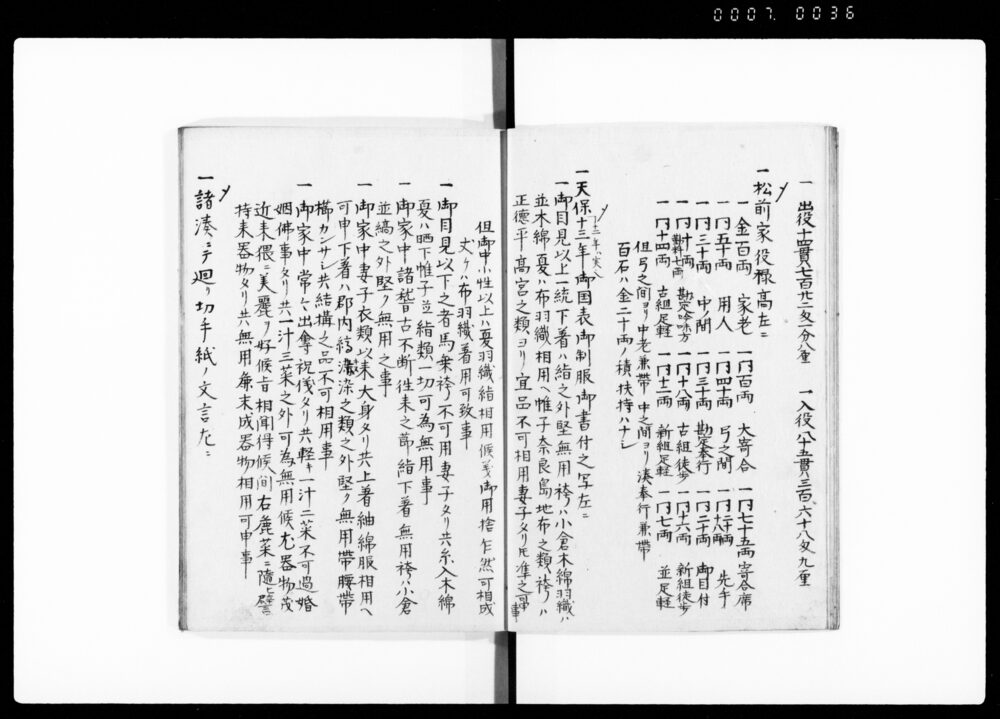 0007 0036
一 出役十四貫七百廿二匁一分八厘 一 入役八十五貫三百六十八匁九厘
一 松前家役禄高左ニ
一 金百両 家老 一 同百両 大寄合 一 同七十五両 寄合席
一 同五十両 用人 一 同四十両 弓之間 一 同二十両 先手
一 同三十両 中ノ間 一 同三十両 勘定奉行 一 同二十両 御目付
一 同十両 勘定吟味方 一 同十八両 古組徒歩 一 同十六両 新組徒歩
一 同十四両 古組足軽 一 同十二両 新組足軽 一 同七両 並足軽
但弓之間ヨリ中老兼帯 中之間ヨリ湊奉行兼帯
百石ハ金二十両ノ積扶持ハナシ
一 天保十三年御国表御制服御書付之写左ニ
一 御目見以上一統下着ハ絹之外堅無用袴ハ小倉木綿羽織ハ
並木綿夏ハ布羽織相用ヘ帷子奈良島地布之類袴ハ
正徳平高宮之類ヨリ宜品不可相用妻子タリ共准之事
但御中小性以上ハ夏羽織絽相用候義御用捨乍然可相成
丈ケハ布羽織着用可致事
一 御目見以下之者馬乗袴不可用妻子タリ共糸入木綿
夏ハ晒下帷子並絹類一切可為無用事
一 御家中諸稽古不断往来之節絹下着無用袴ハ小倉
並縞之外堅ク無用之事
一 御家中妻子衣類以来大身タリ共上着紬綿服相用ヘ
可申下着ハ郡内縞染之類之外堅ク無用帯腰帯
構カンサシ共結構之品不可相用事
一 御家中常々出會祝儀タリ共軽キ一汁二菜不可過婚
姻佛事タリ共一汁三菜之外可為無用候尤器物茂
近来猥ニ美麗ヲ好候旨相聞得候間右麁菜ニ随ヒ
持来器物タリ共無用麁末成器物相用可申事
一 諸湊ニテ廻リ切手紙ノ文言左ニ